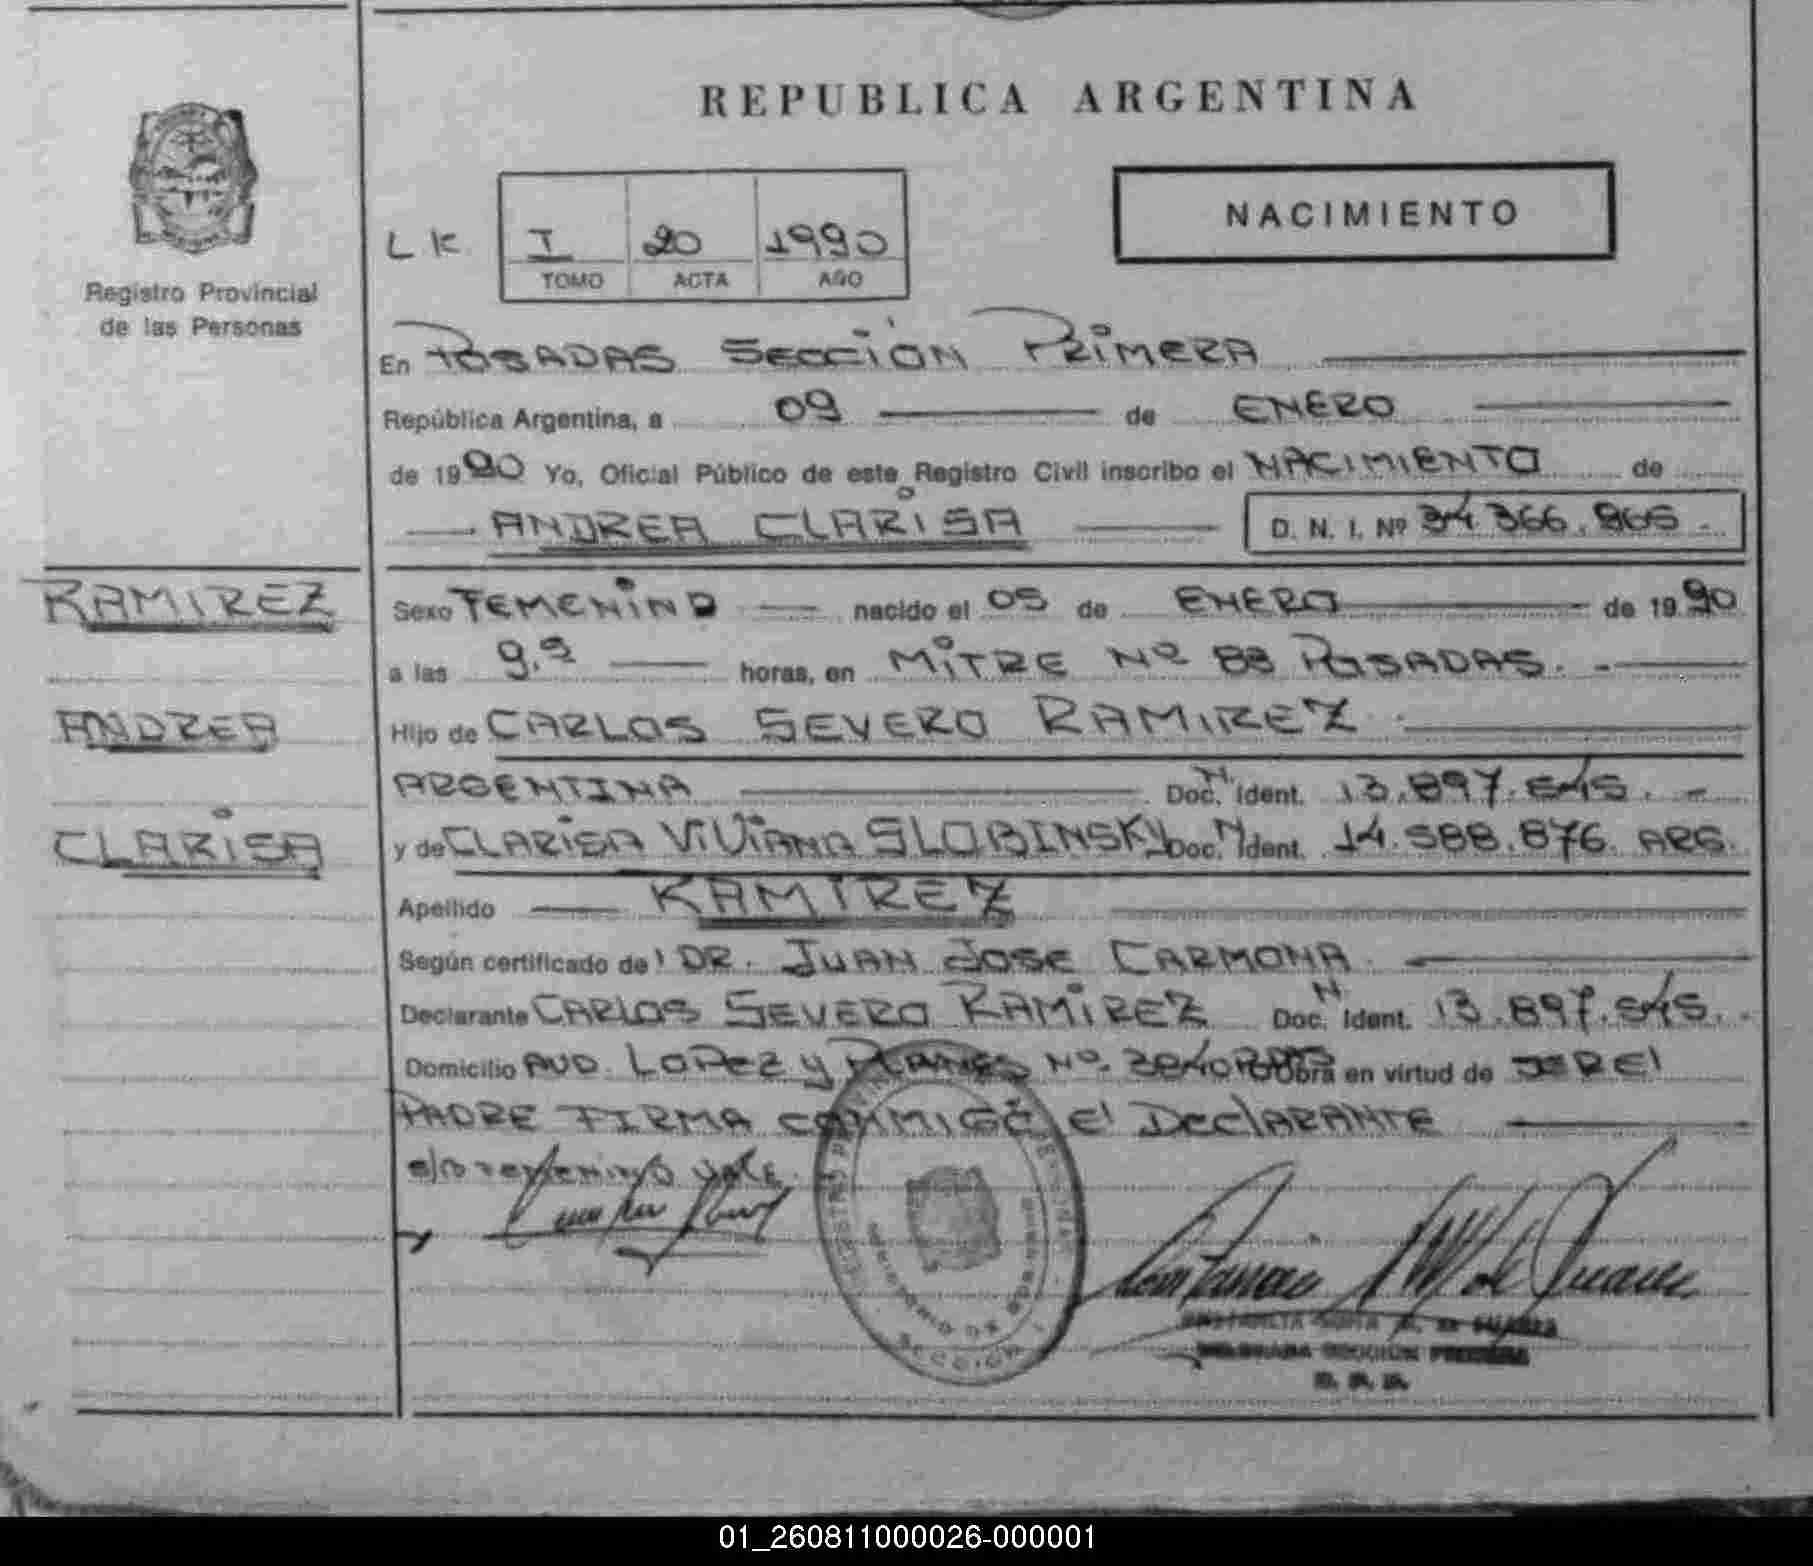 REPUBLICA ARGENTINA
NACIMIENTO
LK I 20 1990
TOMO ACTA AÑO
Registro Provincial
de las Personas
En POSADAS SECCIÓN PRIMERA
República Argentina, a 09 de ENERO
de 1990 Yo, Oficial Público de este Registro Civil inscribo el NACIMIENTO de
ANDREA CLARISA D. N. I. Nº 34.366.865
RAMIREZ
ANDREA
CLARISA
Sexo FEMENINO nacido el 05 de ENERO de 1990
a las 9.ª horas, en MITRE Nº 88 POSADAS.
Hijo de CARLOS SEVERO RAMIREZ
ARGENTINA Doc. N. Ident. 13.897.545.
y de CLARISA VIVIANA SLOBINSKY Doc. N. Ident. 14.588.876. ARG.
Apellido RAMIREZ
Según certificado del DR. JUAN JOSE CARMONA
Declarante CARLOS SEVERO RAMIREZ Doc. N. Ident. 13.897.545.
Domicilio AVD. LOPEZ y PLANES Nº. 2840 Obra en virtud de SER El
PADRE FIRMA CONMIGO El DEClARANTE
e/o FEMENINO VALE.
SECCION
01_260811000026-000001